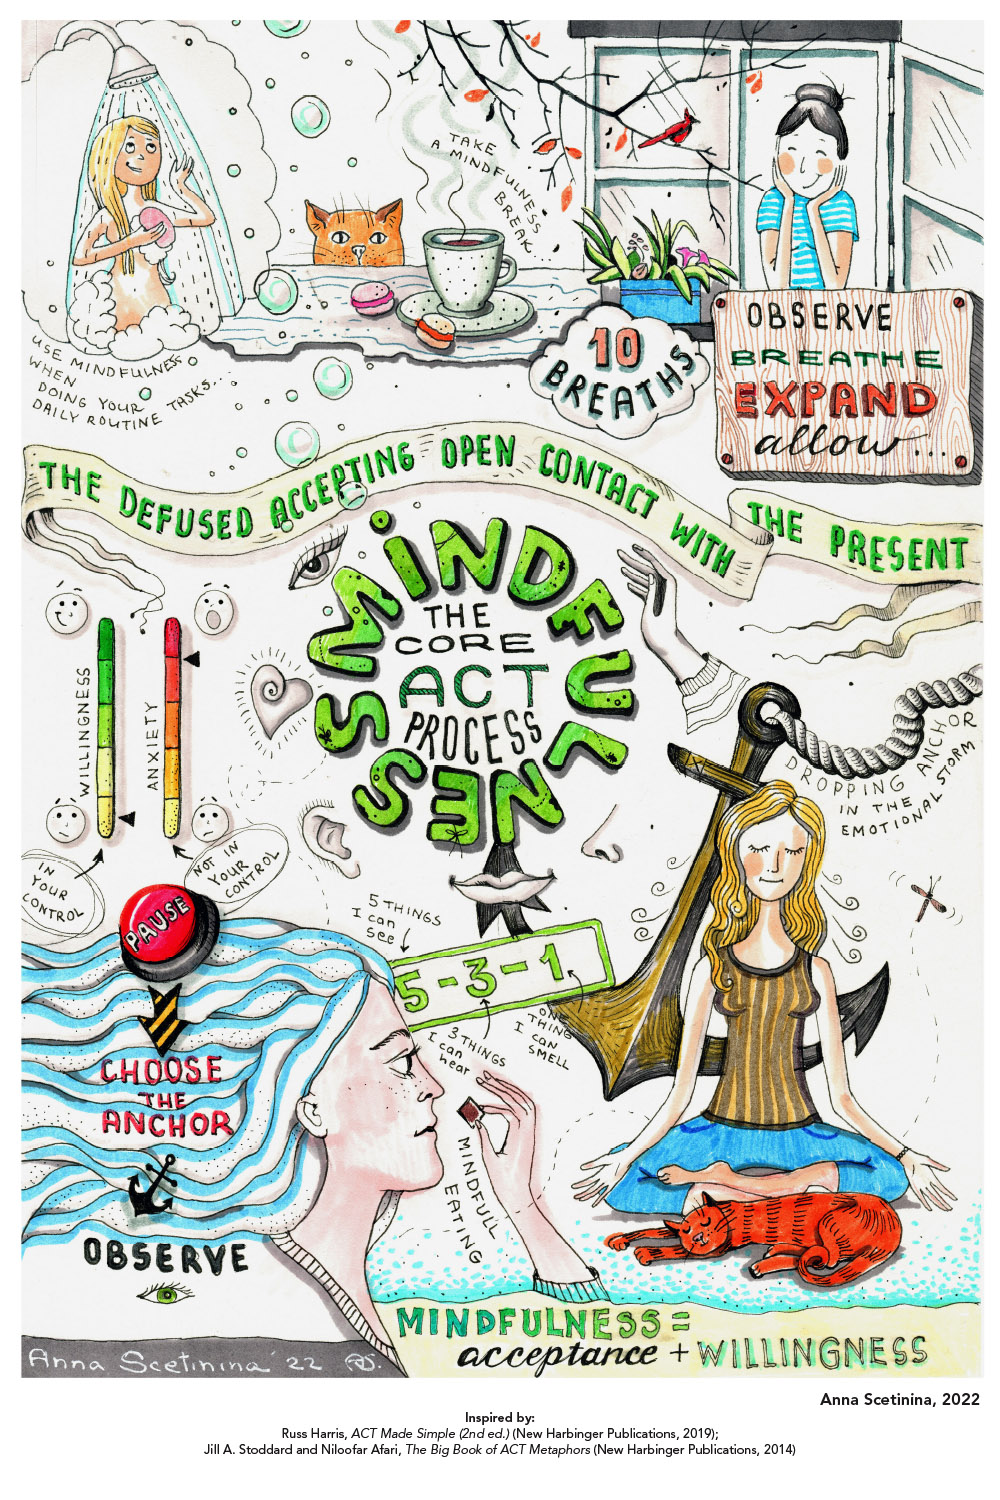 TAKE
A MINDFULNESS
BREAK
USE MINDFULNESS
WHEN
DOING YOUR
DAILY ROUTINE TASKS...
10
BREATHS
OBSERVE
BREATHE
EXPAND
allow...
THE DEFUSED ACCEPTING OPEN CONTACT WITH THE PRESENT
MINDFULNESS
THE
CORE
ACT
PROCESS
WILLINGNESS
ANXIETY
IN
YOUR
CONTROL
NOT IN
YOUR
CONTROL
DROPPING ANCHOR
IN THE
EMOTIONAL STORM
PAUSE
CHOOSE
THE
ANCHOR
OBSERVE
5 THINGS
I can
see
5-3-1
3 THINGS
I can
hear
ONE
THING
I CAN
SMELL
MINDFULL
EATING
MINDFULNESS =
acceptance + WILLINGNESS
Anna Scetinina '22 AS.
Anna Scetinina, 2022
Inspired by:
Russ Harris, ACT Made Simple (2nd ed.) (New Harbinger Publications, 2019);
Jill A. Stoddard and Niloofar Afari, The Big Book of ACT Metaphors (New Harbinger Publications, 2014)